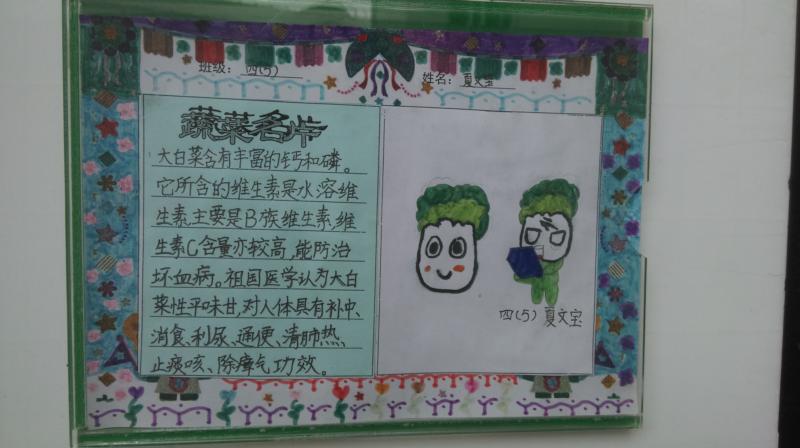 班级： 四(5)
姓名： 夏文宝
蔬菜名片
大白菜含有丰富的钙和磷。
它所含的维生素是水溶维
生素,主要是B族维生素,维
生素C含量亦较高,能防治
坏血病。祖国医学认为大白
菜性平味甘,对人体具有补中、
消食、利尿、通便、清肺热、
止痰咳、除瘴气功效。
四(5) 夏文宝